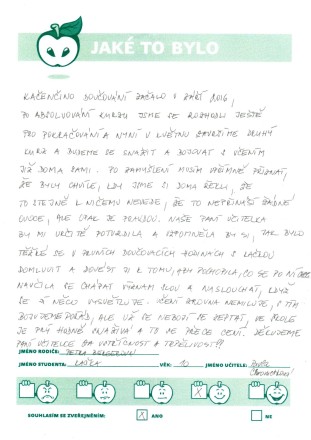 JAKÉ TO BYLO
KAČENČINO DOUČOVÁNÍ ZAČALO V ZÁŘÍ 2016,
PO ABSOLVOVÁNÍ KURZU JSME SE ROZHODLI JEŠTĚ
PRO POKRAČOVÁNÍ A NYNÍ V KVĚTNU ZAVRŠÍME DRUHÝ
KURZ A BUDEME SE SNAŽIT A BOJOVAT S UČENÍM
JIŽ DOMA SAMI. PO ZAMYŠLENÍ MUSÍM UPŘÍMNĚ PŘIZNAT,
ŽE BYLY CHVÍLE, KDY JSME SI DOMA ŘEKLI, ŽE
TO STEJNĚ K NIČEMU NEVEDE, ŽE TO NEPŘINÁŠÍ ŽÁDNÉ
OVOCE, ALE OPAK JE PRAVDOU. NAŠE PANÍ UČITELKA
BY MI URČITĚ POTVRDILA A VZPOMNĚLA BY SI, JAK BYLO
TĚŽKÉ SE V PRVNÍCH DOUČOVACÍCH HODINÁCH S KAČKOU
DOMLUVIT A DOVÉST JI K TOMU, ABY POCHOPILA, CO SE PO NÍ CHCE
NAUČILA SE CHÁPAT VÝZNAM SLOV A NASLOUCHAT, KDYŽ
SE JÍ NĚCO VYSVĚTLUJE. UČENÍ ZROVNA NEMILUJE, S TÍM
BOJUJEME POŘÁD, ALE UŽ SE NEBOJÍ SE ZEPTAT, VE ŠKOLE
JE PRÝ HODNĚ SNAŽIVÁ A TO SE PŘECE CENÍ. DĚKUJEME
PANÍ UČITELCE ZA VSTŘÍCNOST A TRPĚLIVOST!!
JMÉNO RODIČE: PETRA
JMÉNO STUDENTA: KAČKA VĚK: 10 JMÉNO UČITELE:
X
SOUHLASÍM SE ZVEŘEJNĚNÍM: X ANO NE